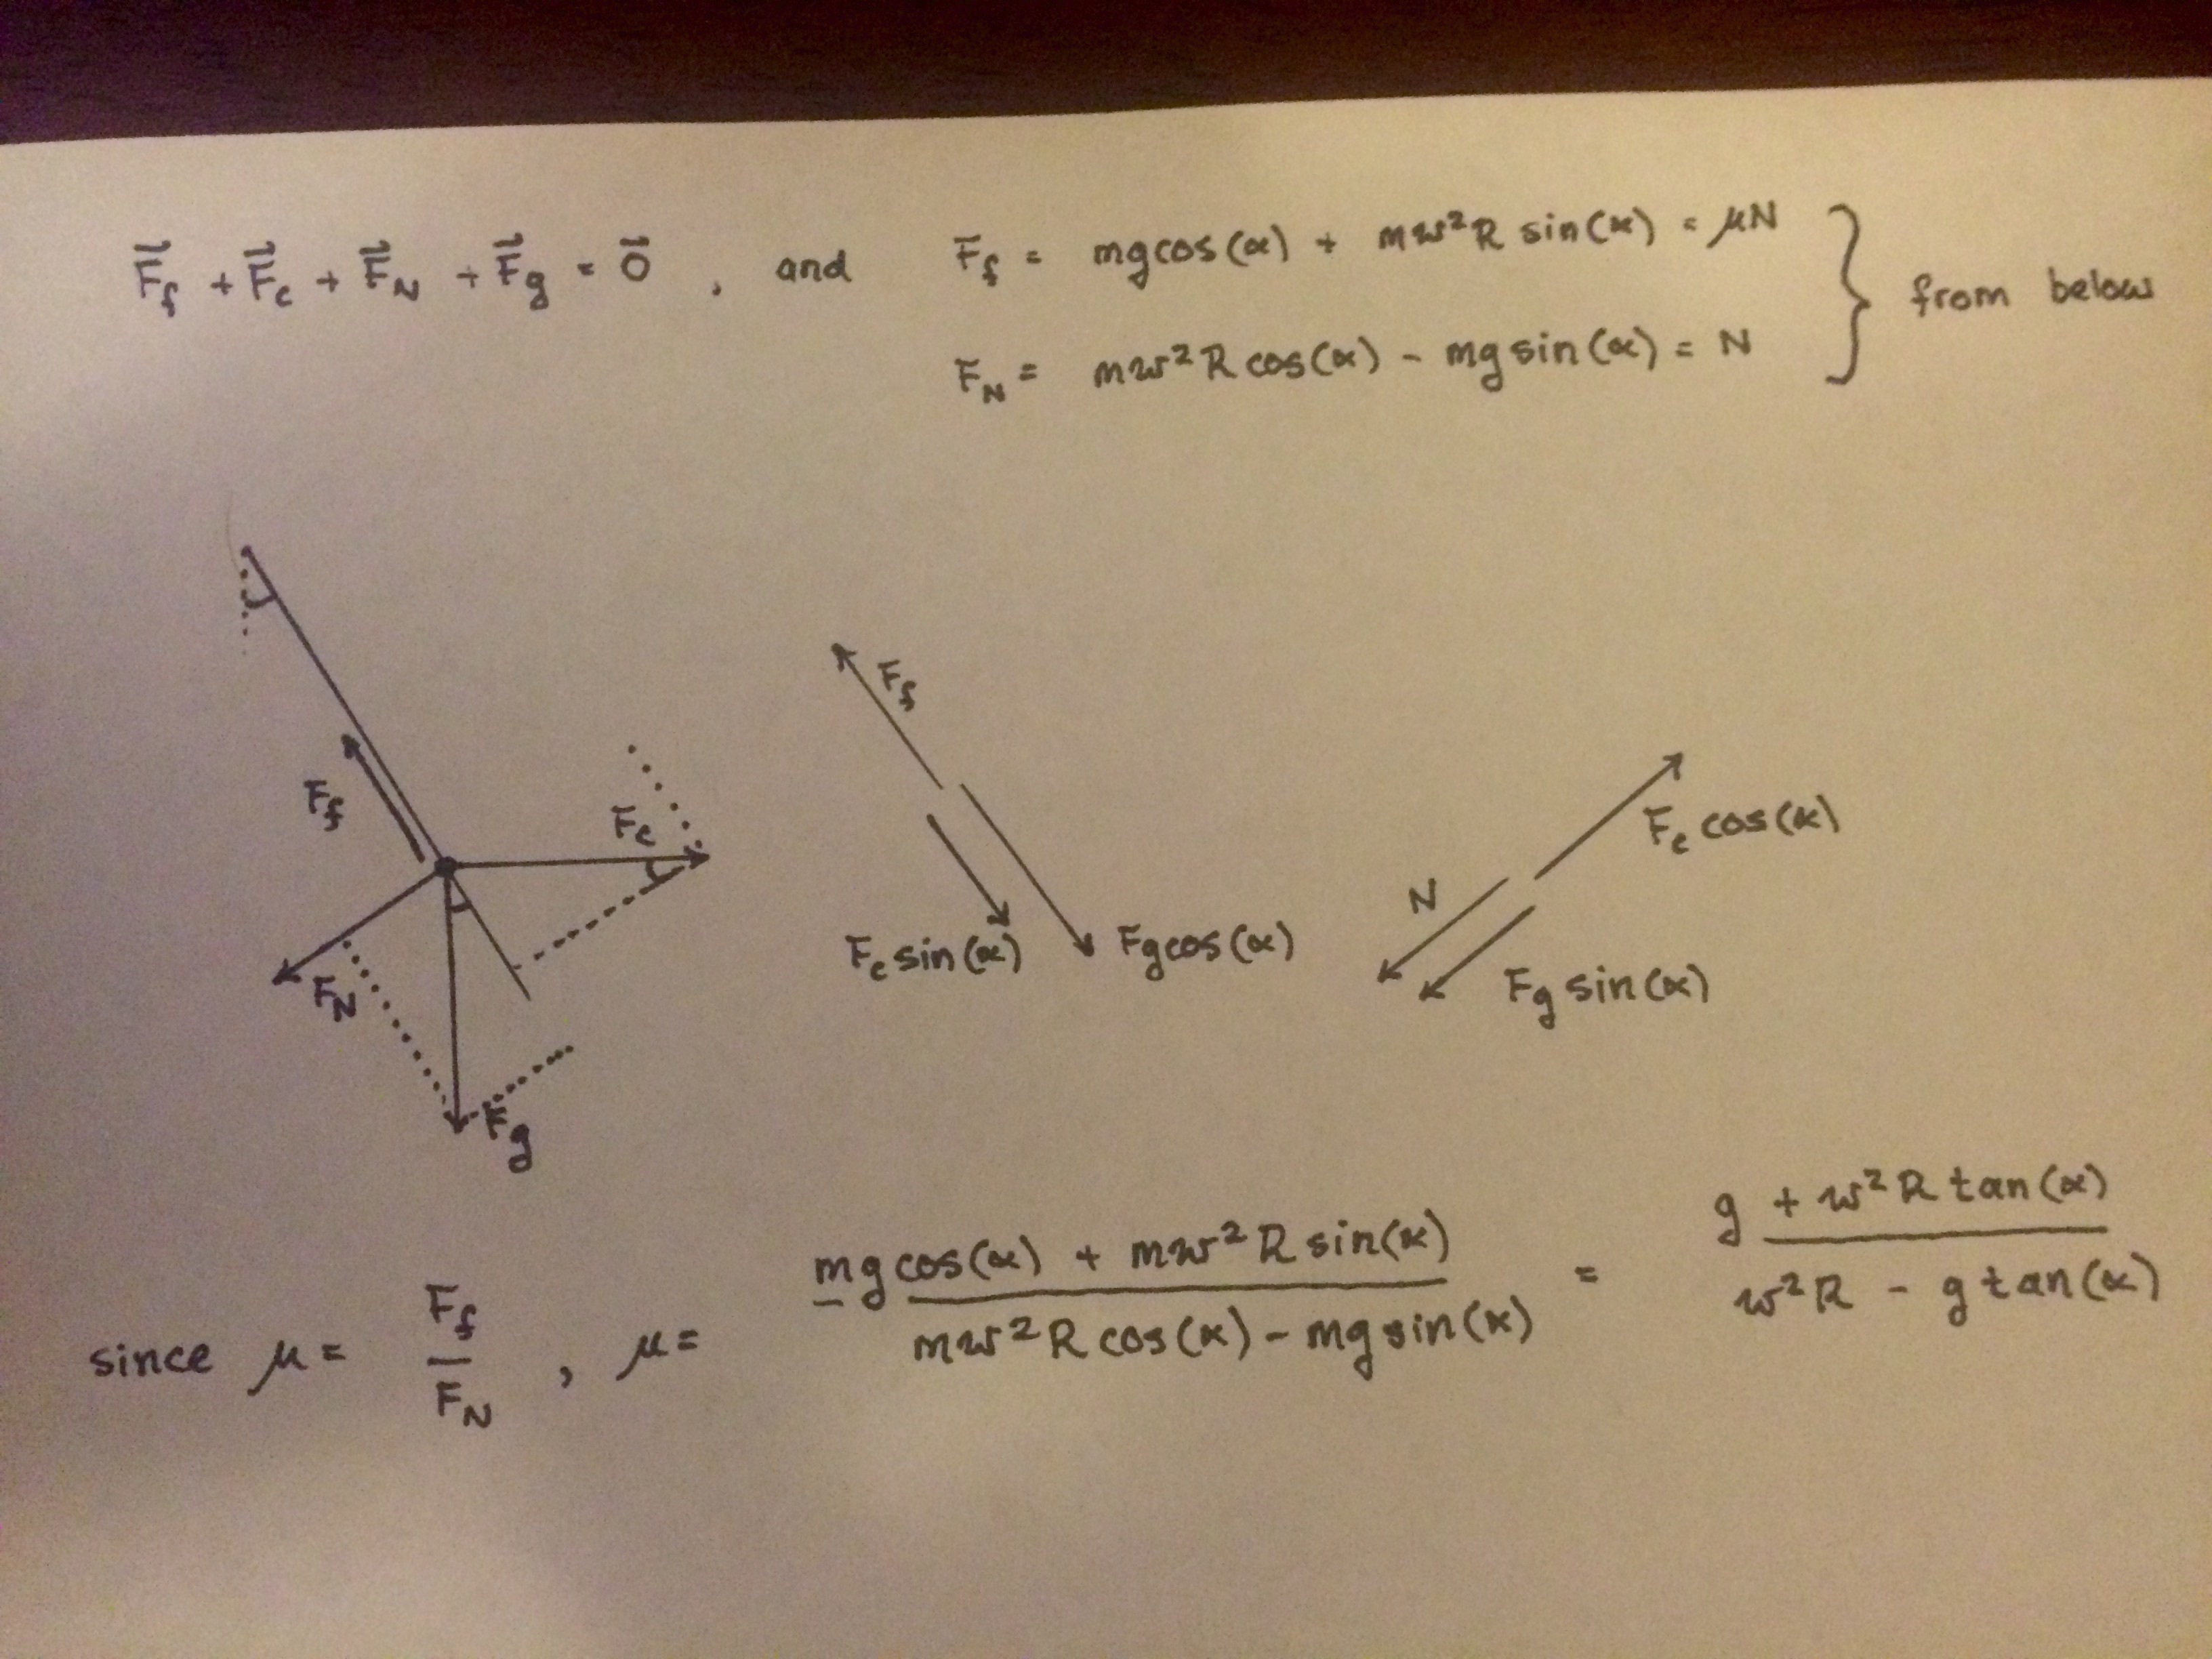 F⃗_f + F⃗_c + F⃗_N + F⃗_g = 0⃗ , and F_f = mg cos(α) + mw²R sin(α) = μN
F_N = mw²R cos(α) - mg sin(α) = N
} from below
F_f
F_c
F_N
F_g
F_f
F_c sin(α)
F_g cos(α)
N
F_c cos(α)
F_g sin(α)
since μ = F_f / F_N , μ = (mg cos(α) + mw²R sin(α)) / (mw²R cos(α) - mg sin(α)) = (g + w²R tan(α)) / (w²R - g tan(α))